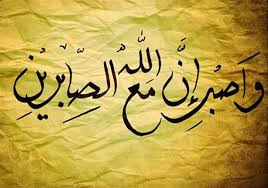 وَاصْبِر إِنَّ اللّٰهَ مَعَ الصَّابِرِينِ